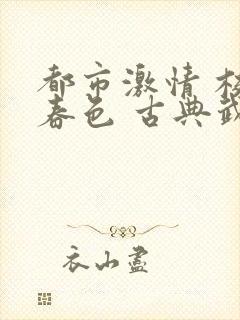 都市激情 校
春色 古典武
衣山盡